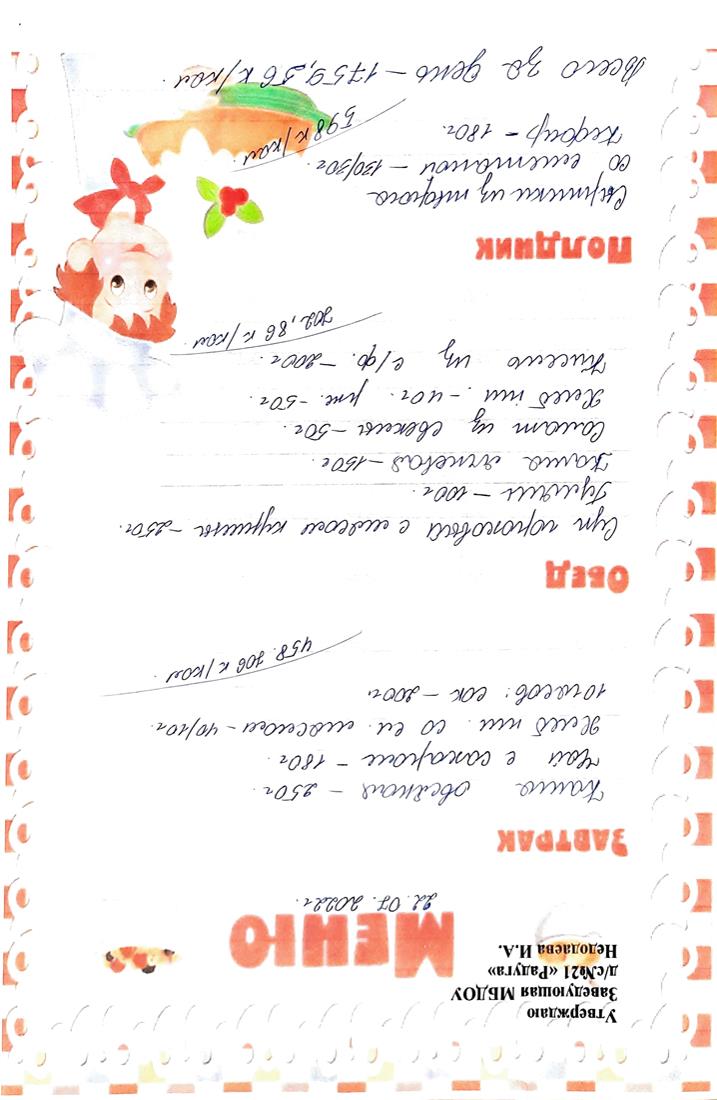 Утверждаю
Заведующая МБДОУ
д/с№21 «Радуга»
Недодаева И.А.
Меню
22. 07. 2022г.
Завтрак
Каша овсяная – 250г.
Чай с сахаром – 180г.
Хлеб пш. со сл. маслом – 40/10г.
10часов: сок – 200г.
458.706 к/кал
Обед
Суп гороховый с мясом курицы – 250г.
Гуляш – 100г.
Каша ячневая – 150г.
Салат из свеклы – 50г.
Хлеб пш. – 40г. рж. – 50г.
Кисель из с/ф. – 200г.
702,86 к/кал.
Полдник
Сырники из творога
со сметаной – 130/30г.
Кефир – 180г.
598 к/кал
Всего за день – 1759,56 к/кал.